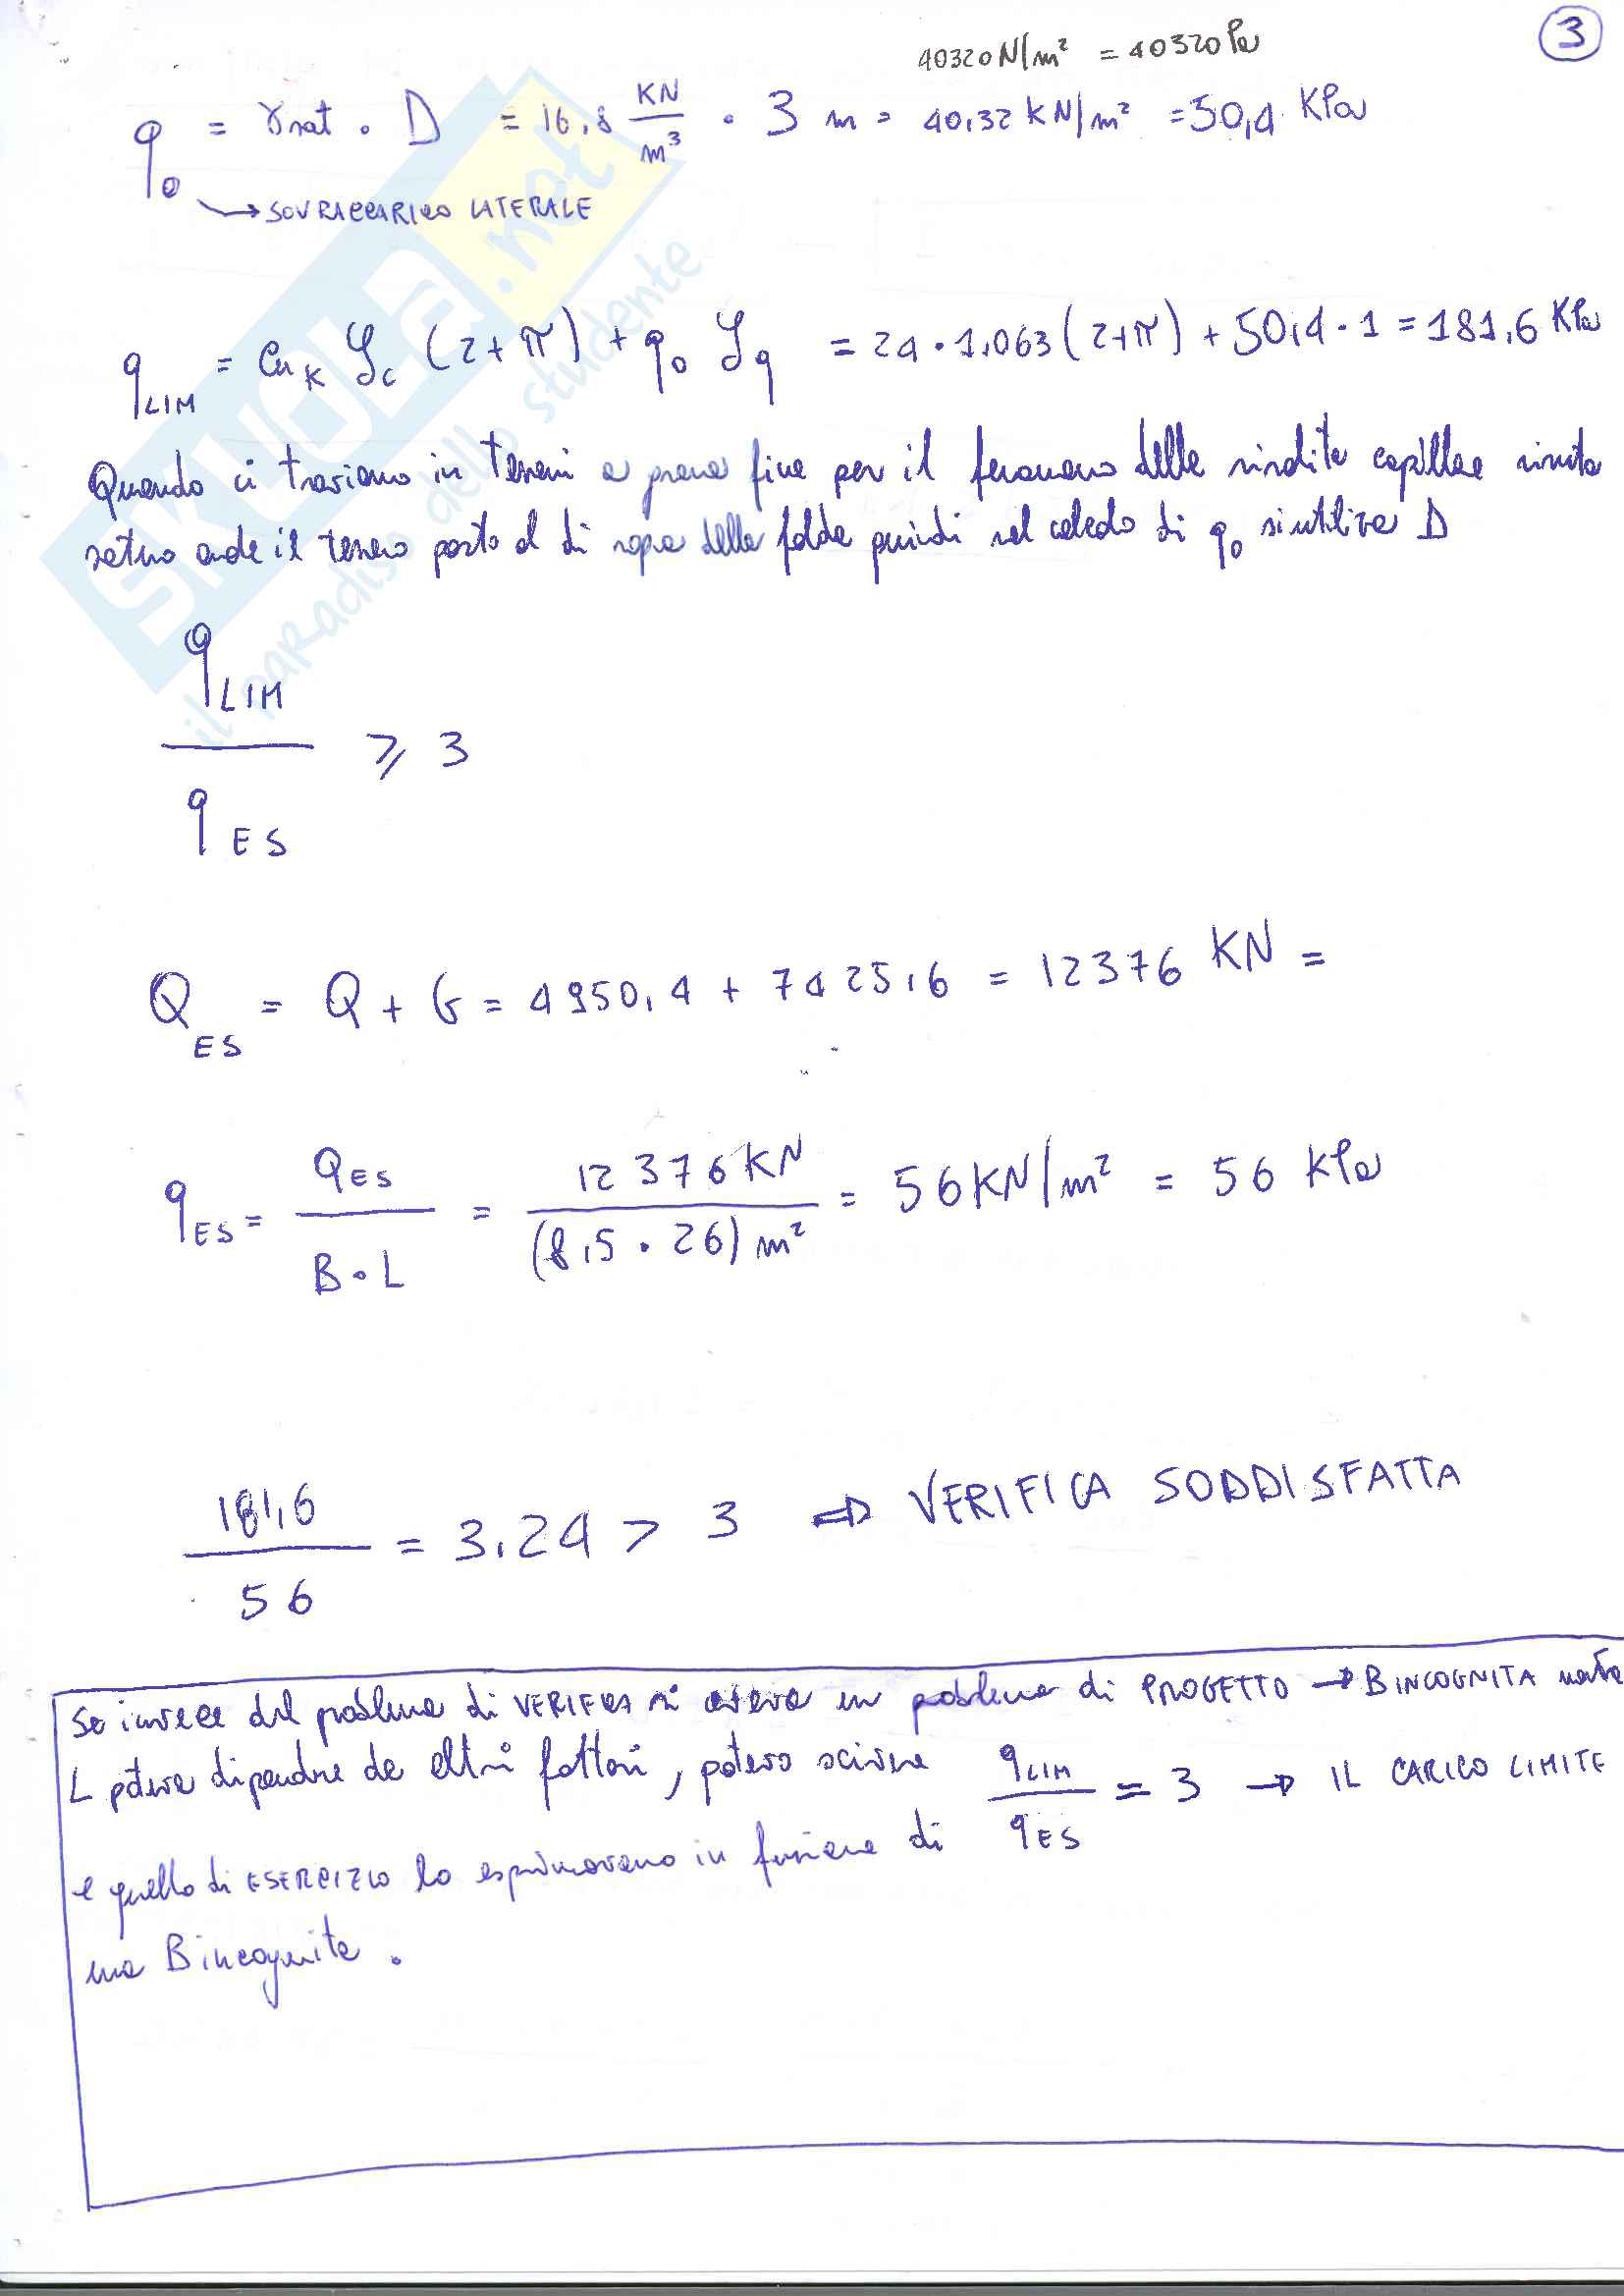 3
40320 N/m² = 40320 Pa
q₀ = γsat · D = 16,8 KN/m³ · 3 m = 40,32 KN/m² = 50,4 KPa
→ SOVRACCARICO LATERALE
q_LIM = Cu_K ζc (2+π) + q₀ ζq = 24 · 1,063 (2+π) + 50,4 · 1 = 181,6 KPa
Quando ci troviamo in terreni a grana fine per il fenomeno della risalita capillare risulta
saturo anche il terreno posto al di sopra della falda quindi nel calcolo di q₀ si utilizza D
q_LIM / q_ES ≥ 3
Q_ES = Q + G = 4950,4 + 7425,6 = 12376 KN =
q_ES = Q_ES / B·L = 12376 KN / (8,5 · 26) m² = 56 KN/m² = 56 KPa
181,6 / 56 = 3,24 > 3 ⇒ VERIFICA SODDISFATTA
Se invece del problema di VERIFICA si aveva un problema di PROGETTO → B INCOGNITA mentre
L poteva dipendere da altri fattori, potevo scrivere q_LIM / q_ES = 3 → IL CARICO LIMITE
e quello di ESERCIZIO lo esprimevano in funzione di
una B incognita.
SKUOLA.net
il paradiso dello studente